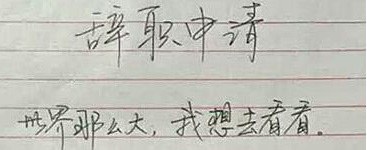 辞职申请
世界那么大,我想去看看.